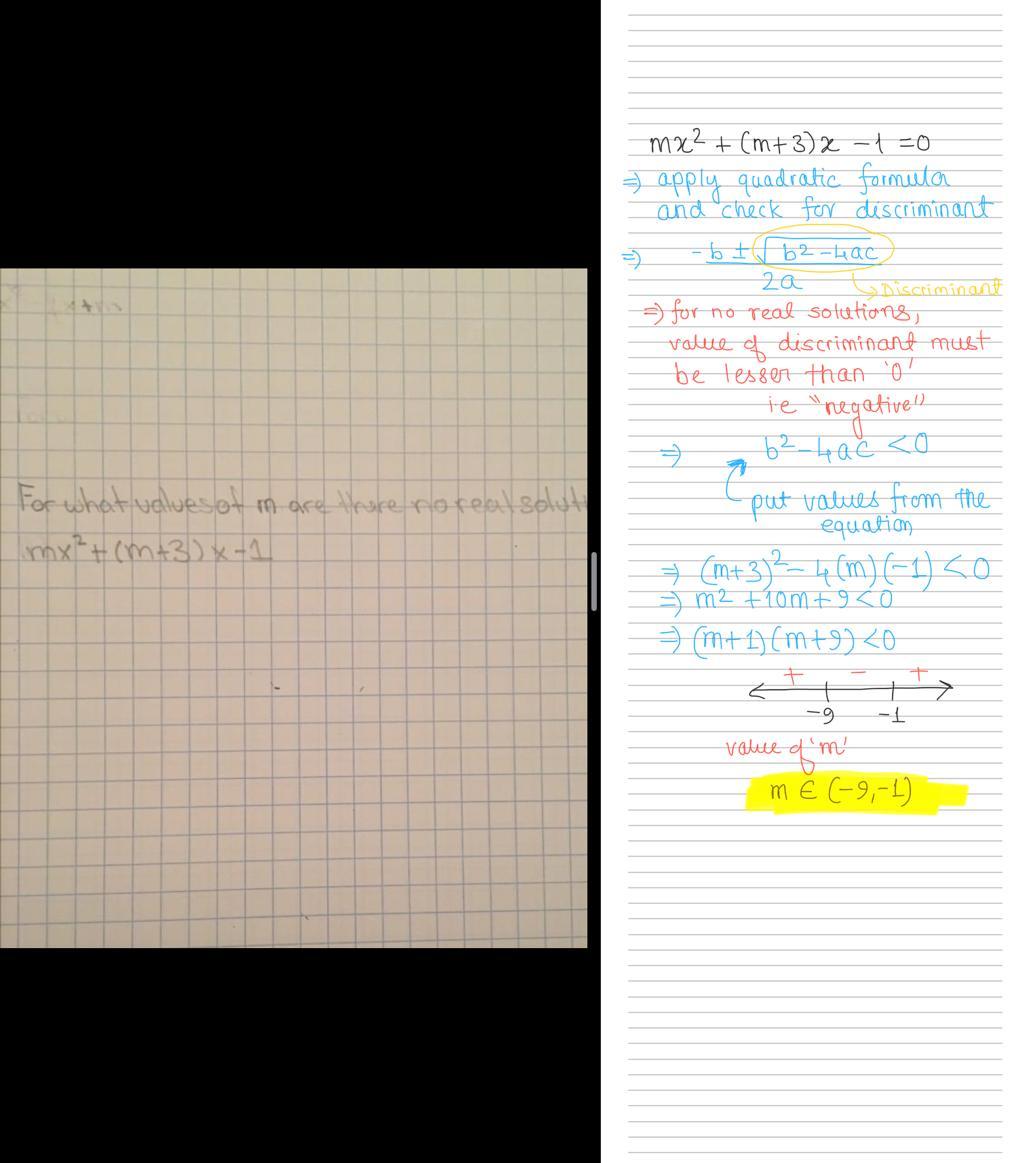 x+m
For what values of m are there no real soluti
mx² + (m+3) x -1
mx² + (m+3)x - 1 = 0
⇒ apply quadratic formula
and check for discriminant
⇒ -b ± √b²-4ac
2a
↳ Discriminant
⇒ for no real solutions,
value of discriminant must
be lesser than '0'
i.e "negative"
⇒ b² - 4ac < 0
put values from the
equation
⇒ (m+3)² - 4(m)(-1) < 0
⇒ m² + 10m + 9 < 0
⇒ (m+1)(m+9) < 0
+ - +
-9 -1
value of 'm'
m ∈ (-9,-1)